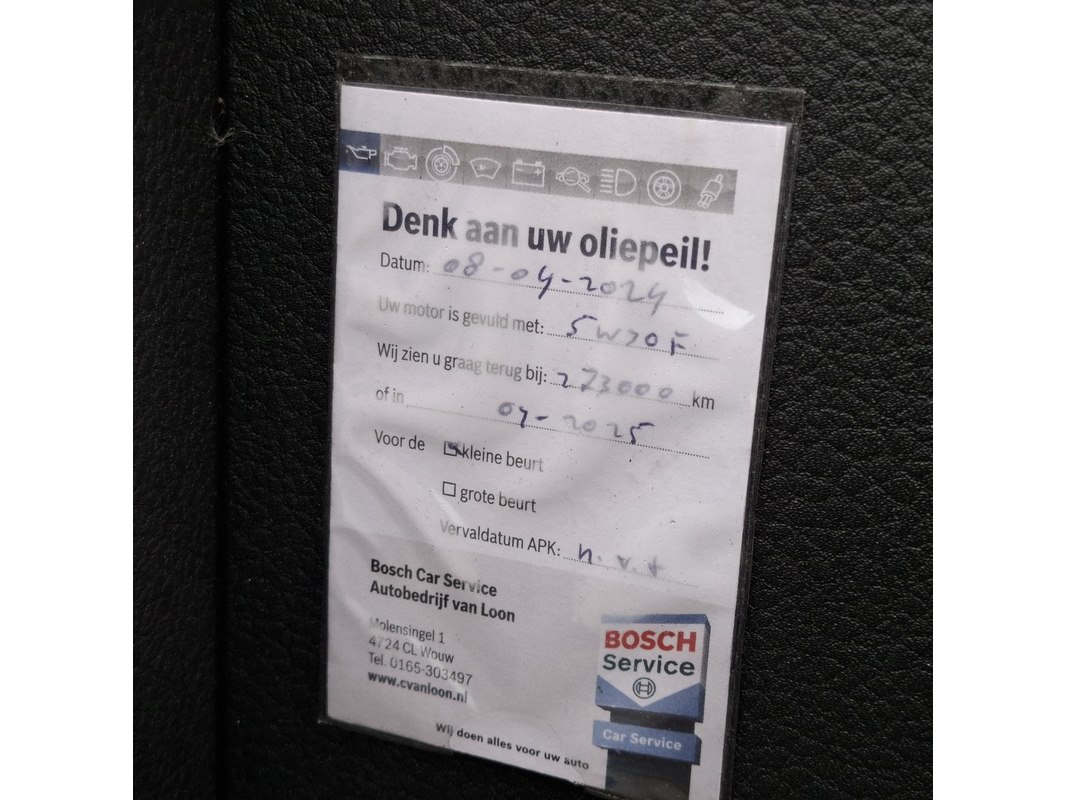 Denk aan uw oliepeil!
Datum: 08-04-2024
Uw motor is gevuld met: 5W30F
Wij zien u graag terug bij: 273000 km
of in 04-2025
Voor de kleine beurt
grote beurt
Vervaldatum APK: n.v.t
Bosch Car Service
Autobedrijf van Loon
Molensingel 1
4724 CL Wouw
Tel. 0165-303497
www.cvanloon.nl
BOSCH
Service
Car Service
Wij doen alles voor uw auto